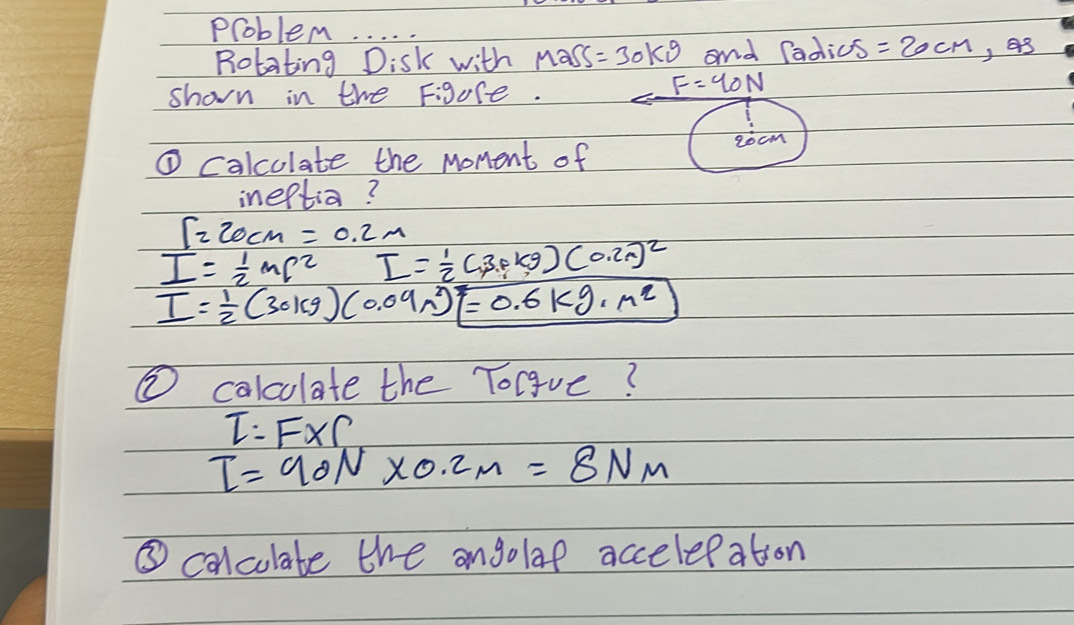 Problem .....
Rotating Disk with Mass = 30kg and radius = 20cm, as
shown in the Figure.
F = 40N
20cm
① Calculate the Moment of
inertia?
r = 20cm = 0.2m
I = ½ mr² I = ½ (30kg)(0.2m)²
I = ½ (30kg)(0.04m²) = 0.6 kg.m²
② calculate the Torque?
τ = F×r
τ = 40N × 0.2m = 8Nm
③ calculate the angular acceleration